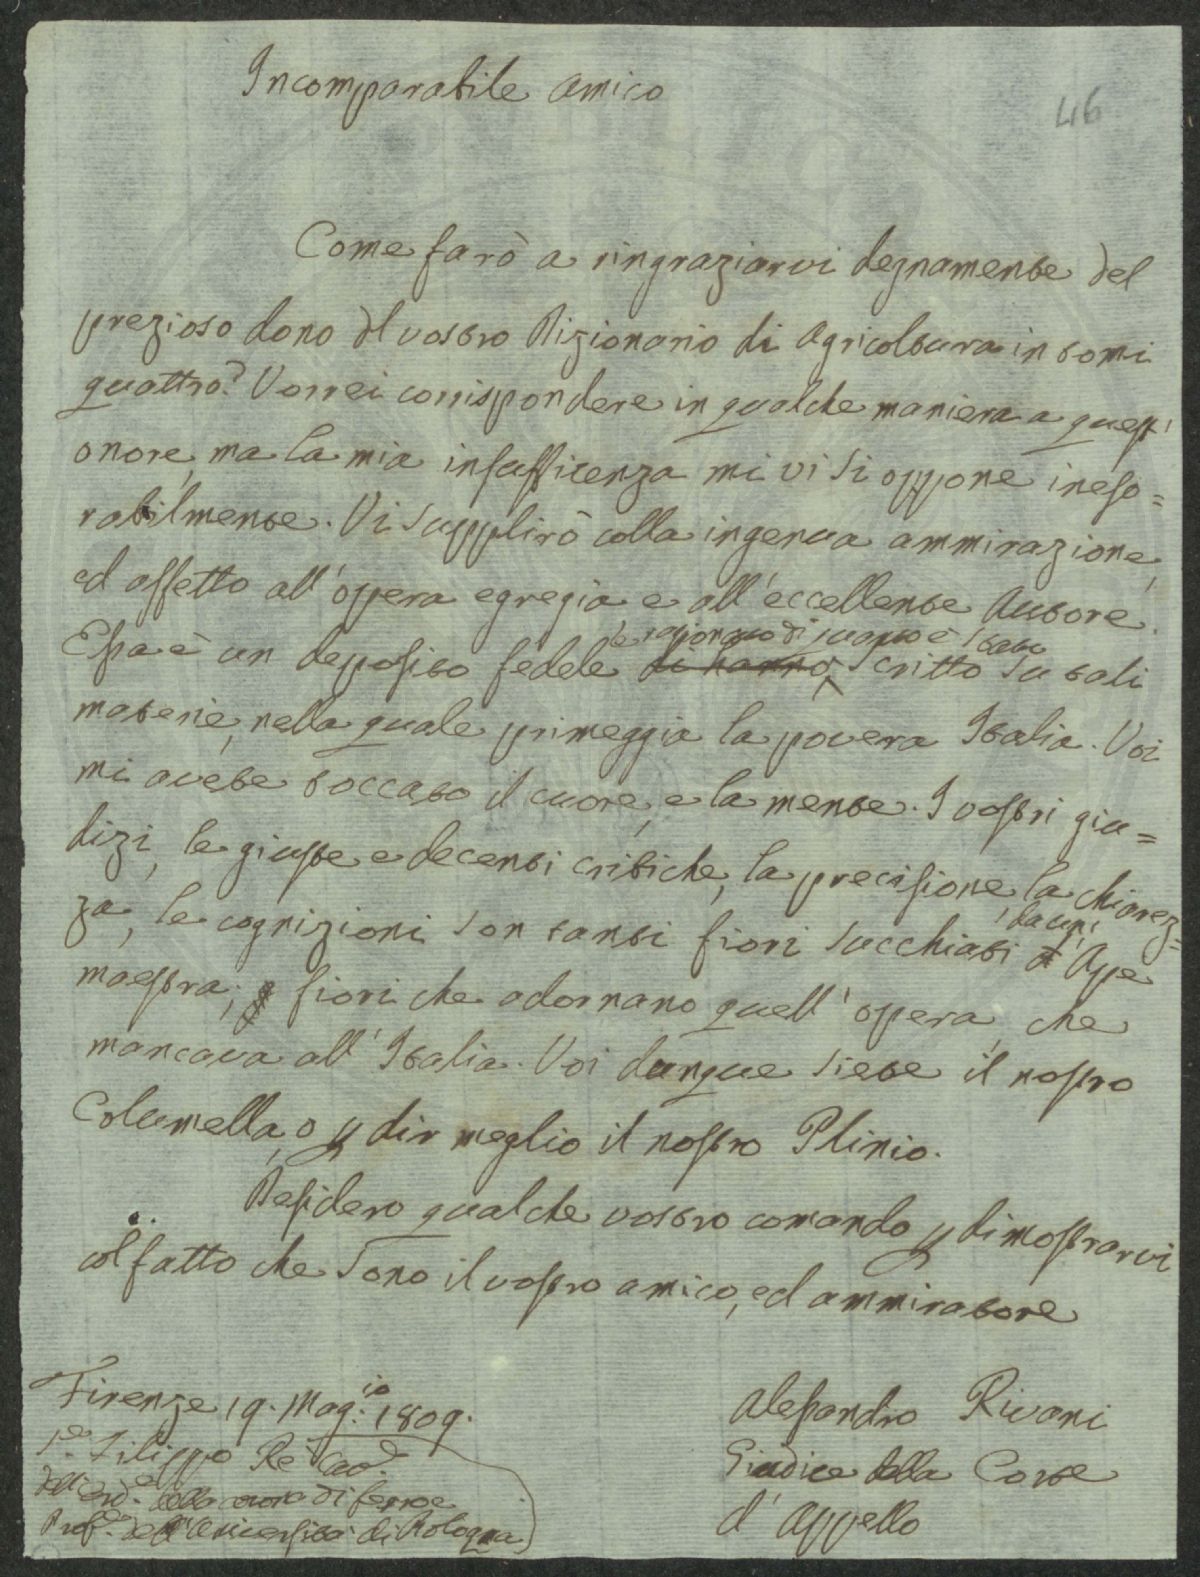 Incomparabile Amico
46
Come farò a ringraziarvi degnamente del
prezioso dono del vostro Dizionario di Agricoltura in tomi
quattro? Vorrei corrispondere in qualche maniera a quest'
onore, ma la mia insufficenza mi vi si oppone ineso=
rabilmente. Vi supplirò colla ingenua ammirazione,
ed affetto all'opera egregia e all'eccellente Autore.
e ragionato di quanto è stato
Essa è un deposito fedele di hanno scritto su tali
materie, nella quale primeggia la povera Italia. Voi
mi avete toccato il cuore, e la mente. I vostri giu=
dizi, le giuste e decenti critiche, la precisione, la chiarez=
za, le cognizioni son tanti fiori succhiati da un' Ape
maestra; fiori che adornano quell'opera, che
mancava all'Italia. Voi dunque siete il nostro
Columella, o p dir meglio il nostro Plinio.
Desidero qualche vostro comando p dimostrarvi
col fatto che sono il vostro amico, ed ammiratore
Firenze 19. Mag.io 1809.
Alessandro Rivani
Giudice della Corte
d'Appello
S.e Filippo Re Cav.e
dell'Ord.e della corona di ferro e
Prof.e dell'Università di Bologna